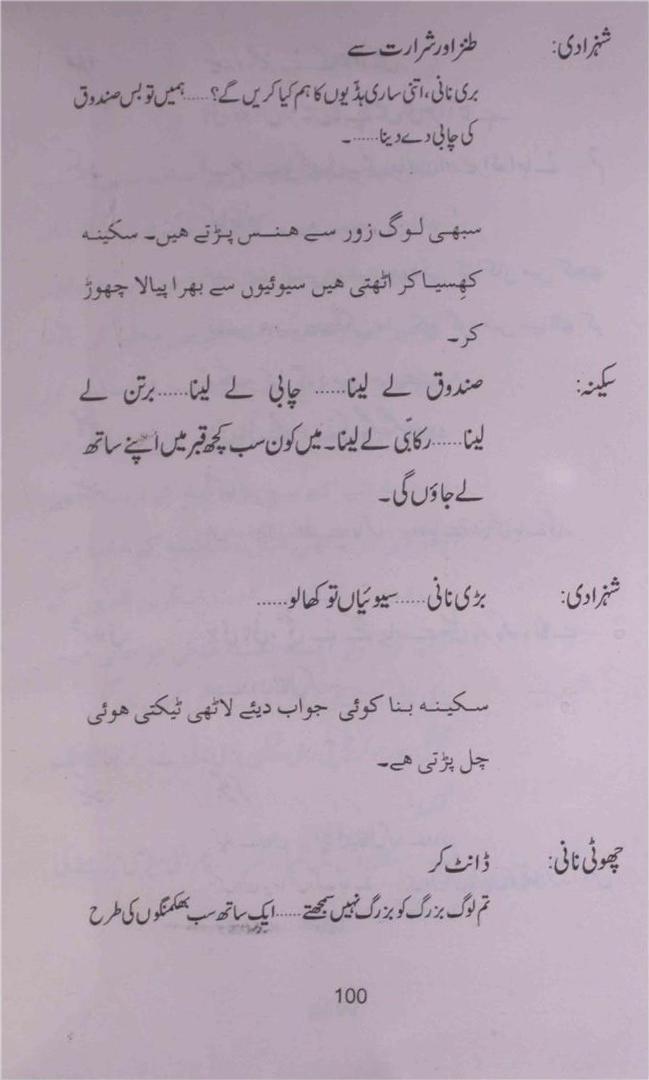 شہزادی: طنز اور شرارت سے
بری نانی، اتنی ساری ہڈیوں کا ہم کیا کریں گے؟...... ہمیں تو بس صندوق
کی چابی دے دینا......۔
سبھی لوگ زور سے ہنس پڑتے ہیں۔ سکینہ
کھِسیا کر اٹھتی ہیں سیوئیوں سے بھرا پیالا چھوڑ
کر۔
سکینہ: صندوق لے لینا...... چابی لے لینا...... برتن لے
لینا...... رکابی لے لینا۔ میں کون سب کچھ قبر میں اپنے ساتھ
لے جاؤں گی۔
شہزادی: بڑی نانی...... سیوئیاں تو کھا لو......
سکینہ بنا کوئی جواب دیئے لاٹھی ٹیکتی ہوئی
چل پڑتی ہے۔
چھوٹی نانی: ڈانٹ کر
تم لوگ بزرگ کو بزرگ نہیں سمجھتے...... ایک ساتھ سب بھکمنگوں کی طرح
100